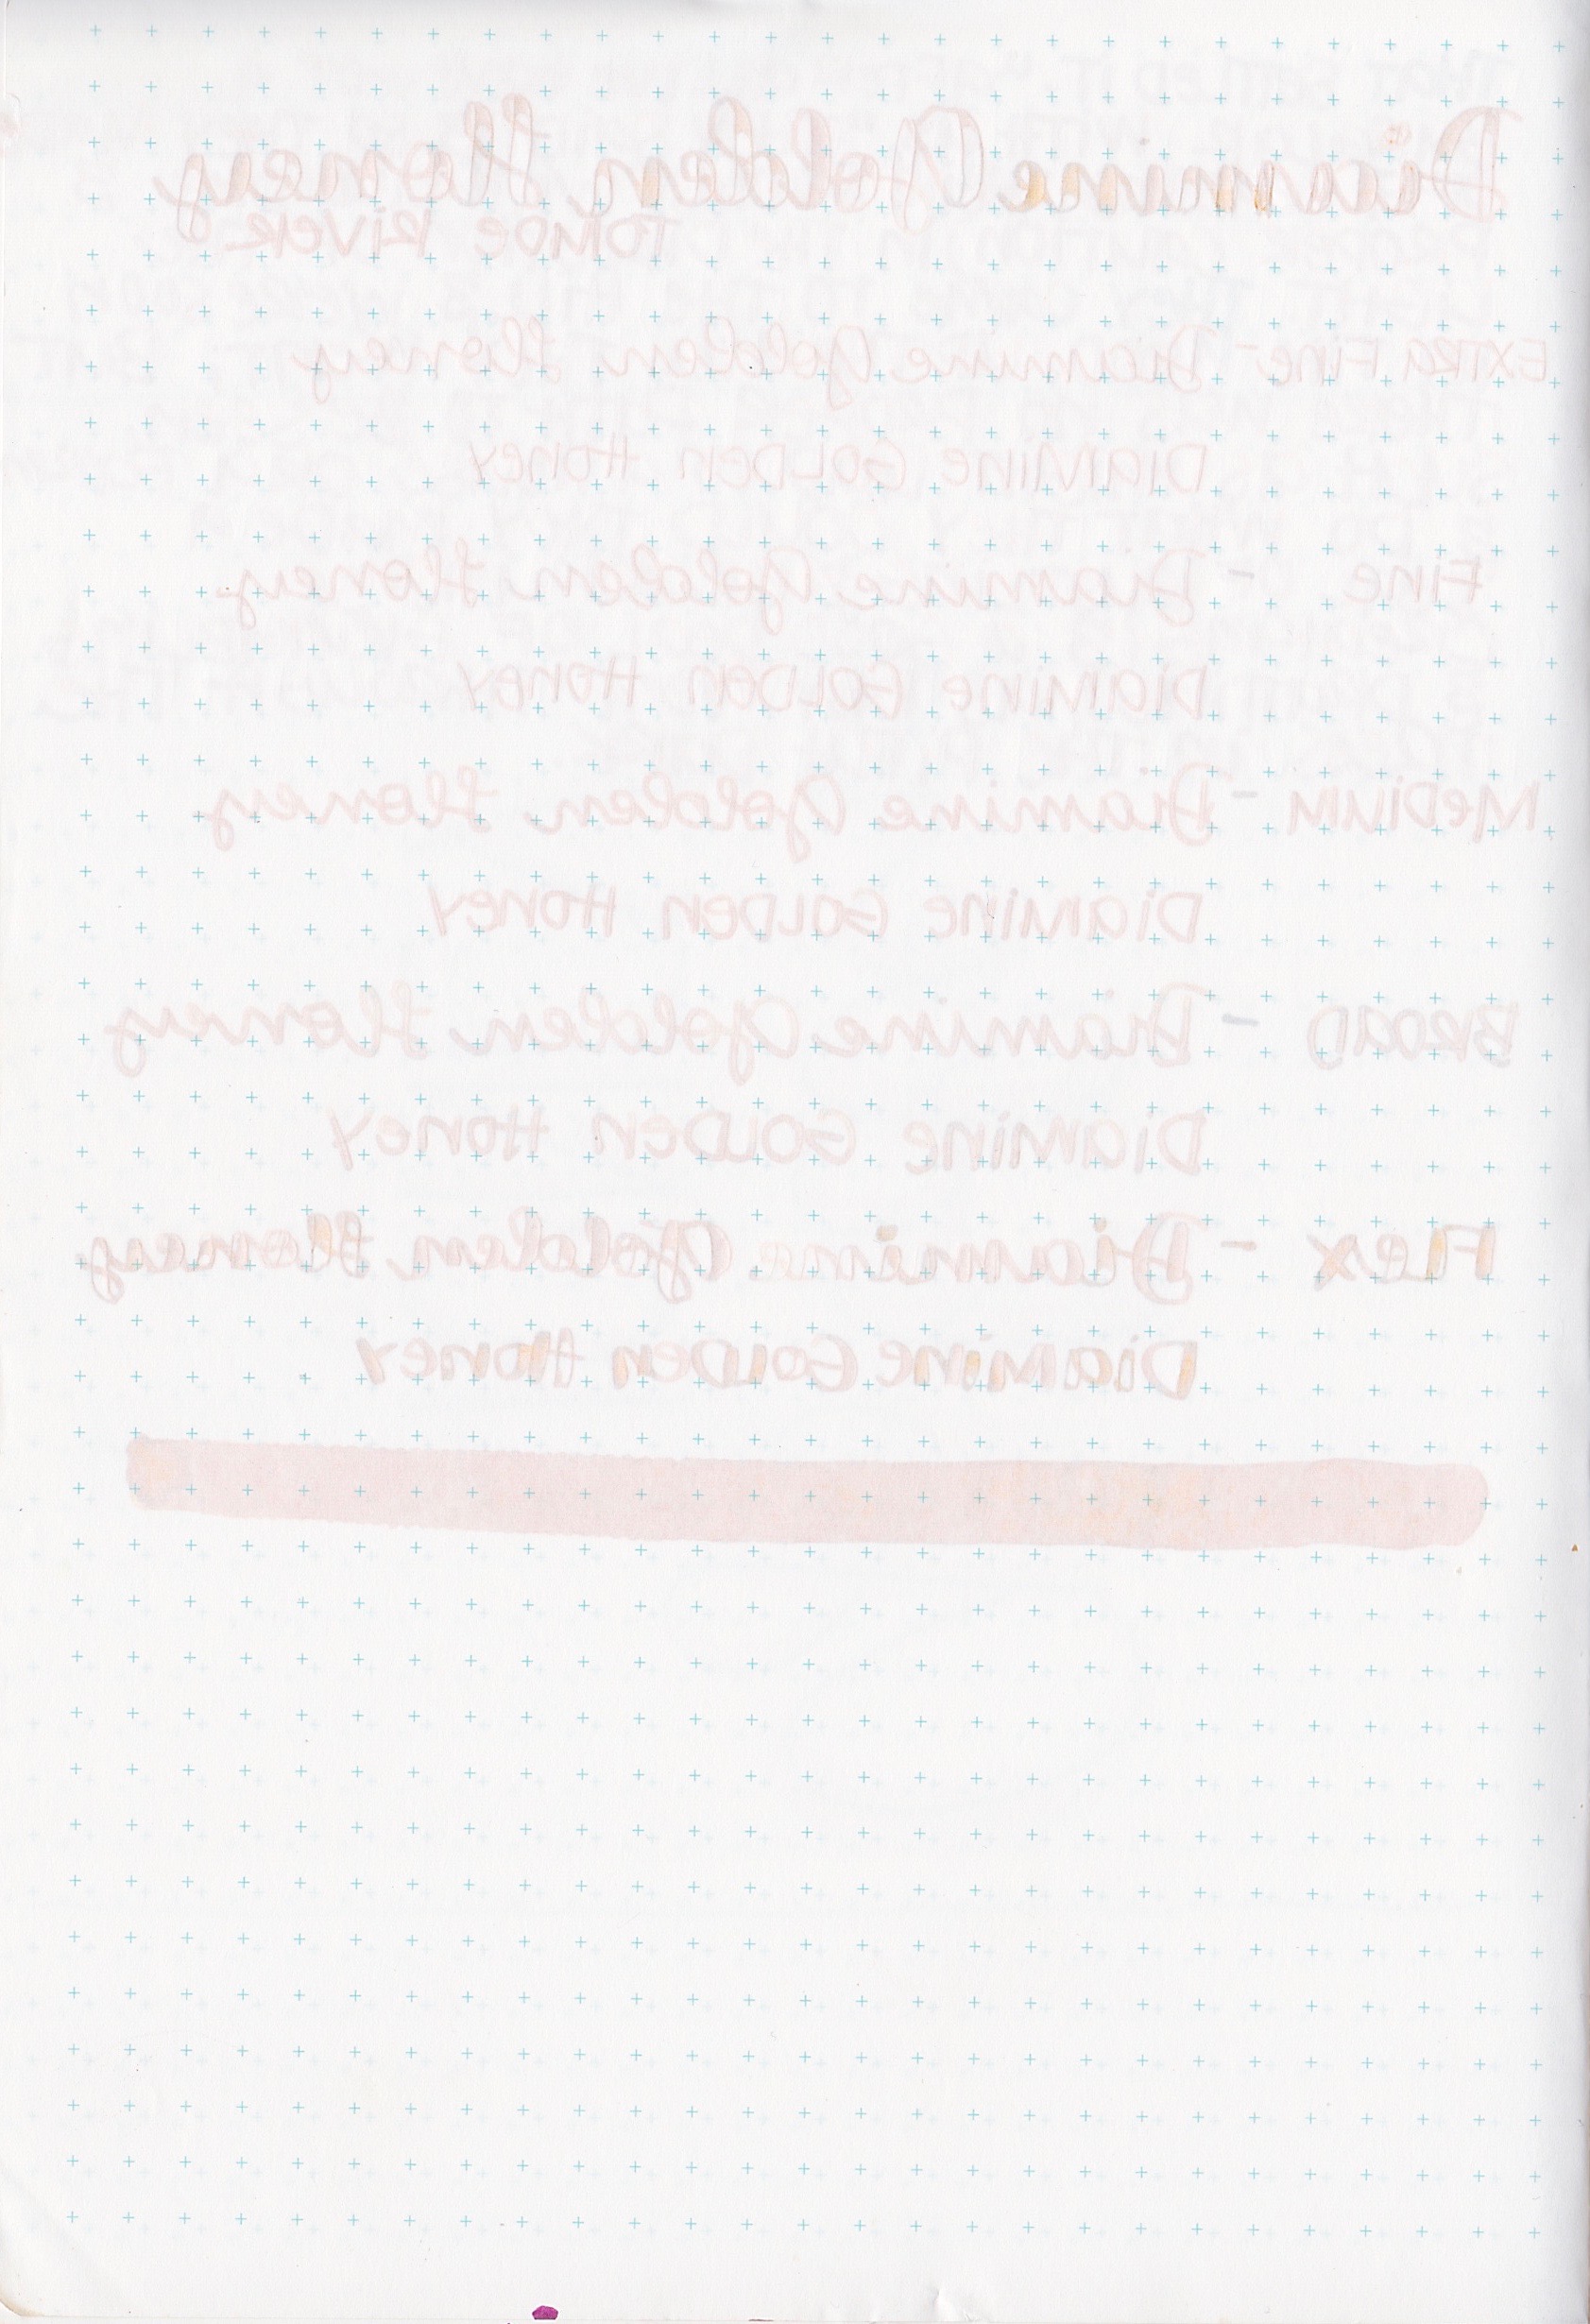 Diamine Golden Honey
TOMOE RIVER
EXTRA FINE - Diamine Golden Honey
DIAMINE GOLDEN HONEY
FINE - Diamine Golden Honey
DIAMINE GOLDEN HONEY
MEDIUM - Diamine Golden Honey
DIAMINE GOLDEN HONEY
BROAD - Diamine Golden Honey
DIAMINE GOLDEN HONEY
FLEX - Diamine Golden Honey
DIAMINE GOLDEN HONEY